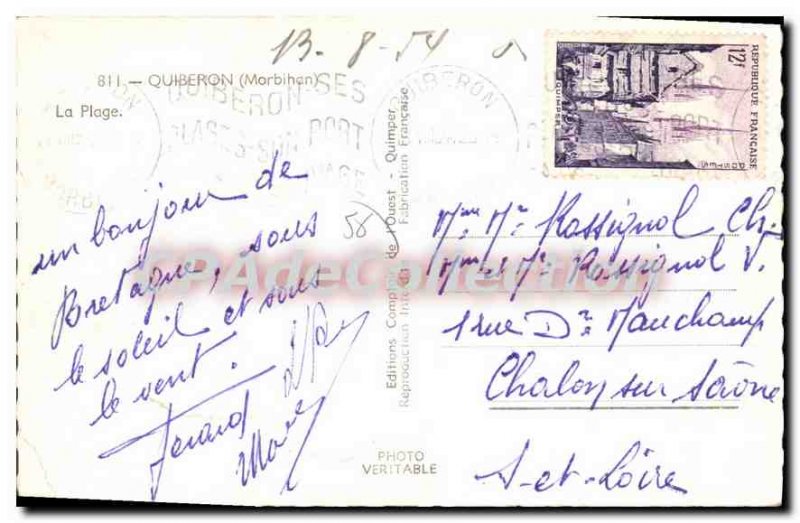 13-8-54
811. — QUIBERON (Morbihan)
La Plage.
un bonjour de
Bretagne, sous
le soleil et sous
le vent.
58
Editions Comptoir de l'Ouest - Quimper
Reproduction Interdite Fabrication Française
PHOTO
VERITABLE
REPUBLIQUE FRANÇAISE
12f
POSTES
QUIMPER
QUIBERON
QUIBERON
PORT
Mme Mr Rossignol Ch.
Mme et Mr Rossignol V.
1 rue Dr Mauchamp
Chalon sur Saône
S-et-Loire
CPAdeCollection